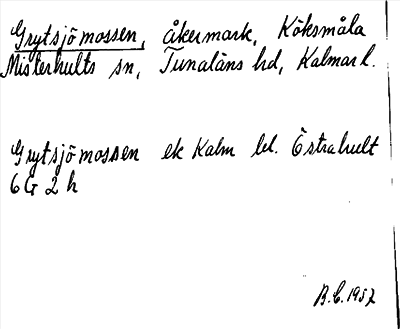 Grytsjömossen, åkermark, Köksmåla
Misterhults sn, Tunaläns hd, Kalmar l.
Grytsjömossen ek Kalm bl. Östrahult
6 G 2 h
B.C. 1957